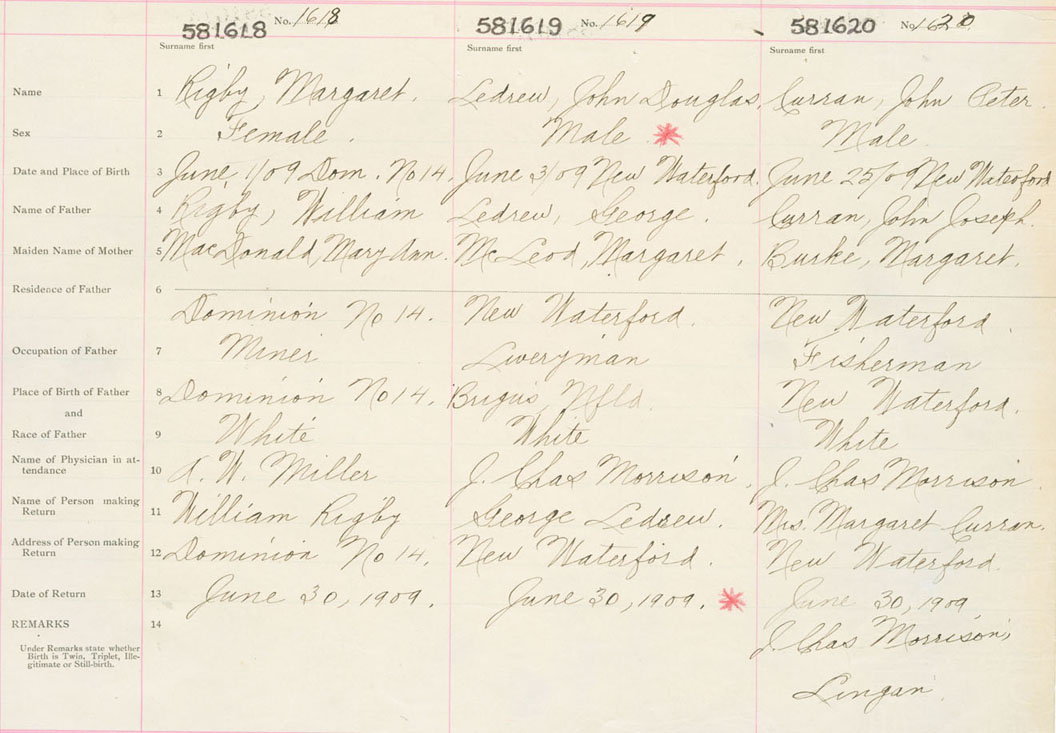 581618 No. 1618 581619 No. 1619 581620 No. 1620
Surname first Surname first Surname first
Name 1 Rigby, Margaret. Ledrew, John Douglas. Curran, John Peter.
Sex 2 Female. Male Male
Date and Place of Birth 3 June 1/09 Dom. No 14. June 3/09 New Waterford. June 25/09 New Waterford
Name of Father 4 Rigby, William Ledrew, George. Curran, John Joseph.
Maiden Name of Mother 5 MacDonald, Mary Ann. McLeod, Margaret. Burke, Margaret.
Residence of Father 6
Dominion No 14. New Waterford. New Waterford.
Occupation of Father 7 Miner Liveryman Fisherman
Place of Birth of Father 8 Dominion No 14. Brigus, Nfld. New Waterford.
and
Race of Father 9 White White White
Name of Physician in at-
tendance 10 A. W. Miller J. Chas Morrison. J. Chas Morrison.
Name of Person making
Return 11 William Rigby George Ledrew. Mrs. Margaret Curran.
Address of Person making
Return 12 Dominion No 14. New Waterford. New Waterford.
Date of Return 13 June 30, 1909. June 30, 1909. June 30, 1909
REMARKS 14 J. Chas Morrison,
Under Remarks state whether
Birth is Twin, Triplet, Ille-
gitimate or Still-birth.
Lingan